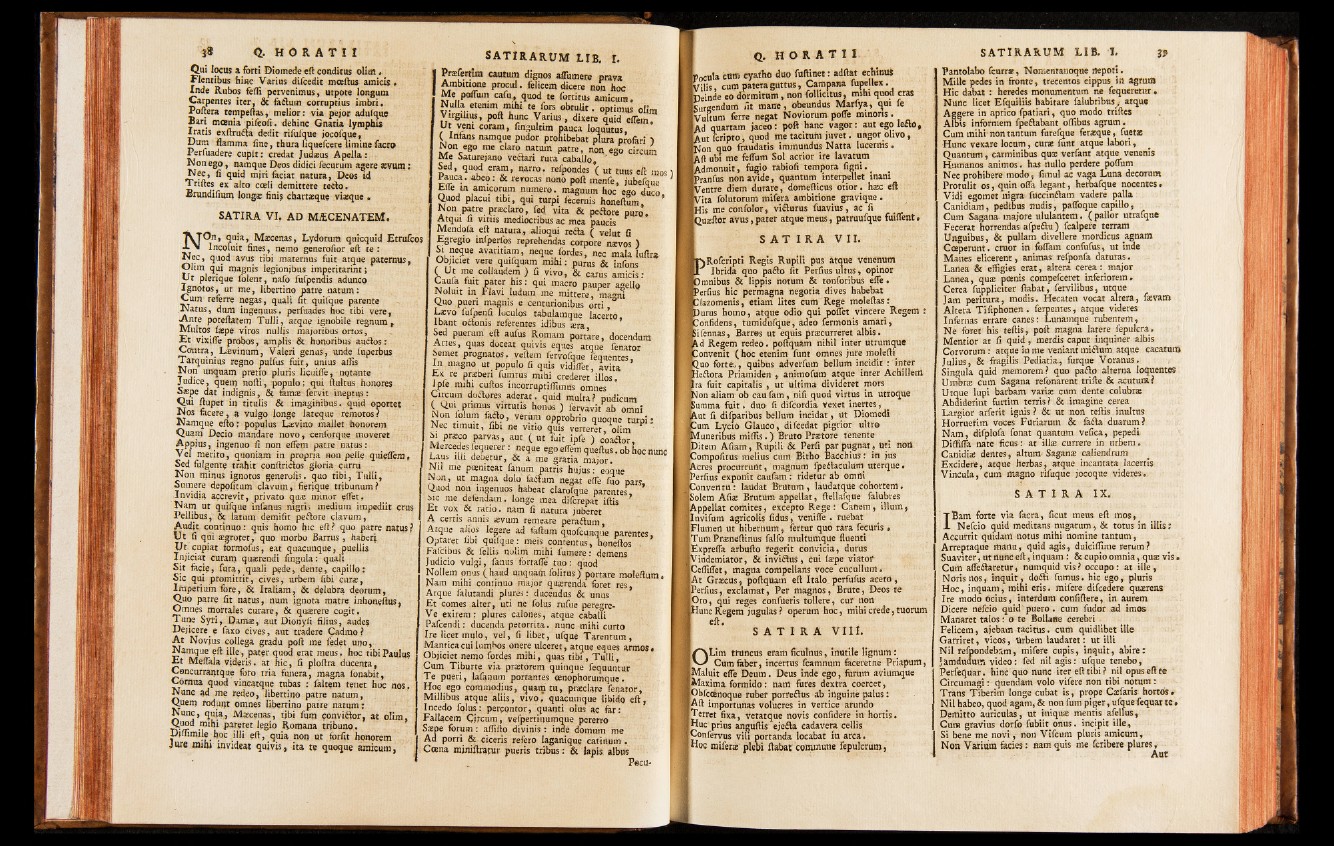 38 Q. HORATII
Qui locus a forti Diomede eſt conditus olim.
Flentibus hinc Varius diſcedit mœſtus amicis.
Inde Rubos feſſi pervenimus, utpote longum
Carpentes iter, & factum corruptius imbri.
Poſtera tempeſtas, melior: via pejor aduſque
Bari mœnia piſcoſi. dehinc Gnatia lymphis
Iratis exſtructa dedit riſuſque jocoſque,
Dum flamma fine, thura liqueſcere limine ſacro
Perſuadere cupit: credat Judæus Apella:
Non ego, namque Deos didici ſecurum agere ævum:
Nec, ſi quid miri faciat natura, Deos id
Triſtes ex alto cœli demittere tecto.
Brundiſium longæ finis chartæque viæque.
SATIRA VI. AD MÆCENATEM.
NOn, quia, Mæcenas, Lydorum quicquid Etruſcos
Incoluit fines, nemo generoſior eſt te:
Nec, quod avus tibi maternus fuit atque paternus,
Olim qui magnis legionibus imperitarint;
Ut plerique ſolent, naſo ſuſpendis adunco
Ignotos, ut me, libertino patre natum:
Cum referre negas, quali ſit quiſque parente
Natus, dum ingenuus. perſuades hoc tibi vere,
Ante poteſtatem Tulli, atque ignobile regnum,
Multos ſæpe viros nullis majoribus ortos,
Et vixiſſe probos, amplis & honoribus auctos:
Contra, Lævinum, Valeri genus, unde ſuperbus
Tarquinius regno pulſus fuit, unius aſſis
Non unquam pretio pluris licuiſſe, notante
Judice, quem noſti, populo; qui ſtultus honores
Sæpe dat indignis, & famæ ſervit ineptus:
Qui ſtupet in titulis & imaginibus. quid oportet
Nos facere, a vulgo longe lateque remotos?
Namque eſto: populus Lævino mallet honorem
Quam Decio mandare novo, cenſorque moveret
Appius, ingenuo ſi non eſſem patre natus:
Vel merito, quoniam in propria non pelle quieſſem.
Sed fulgente trahit conſtrictos gloria curru
Non minus ignotos generoſis. quo tibi, Tulli,
Sumere depoſitum clavum, fierique tribunum?
Invidia accrevit, privato quæ minor eſſet.
Nam ut quiſque inſanus nigris medium impediit crus
Pellibus, & latum demiſit pectore clavum,
Audit continuo: quis homo hic eſt? quo patre natus?
Ut ſi qui ægrotet, quo morbo Barrus, haberi
Ut cupiat formoſus, eat quacunque, puellis
Injiciat curam quærendi ſingula: quali
Sit facie, ſura, quali pede, dente, capillo:
Sic qui promittit, cives, urbem ſibi curæ,
Imperium fore, & Italiam, & delubra deorum,
Quo patre ſit natus, num ignota matre inhoneſtus,
Omnes mortales curare, & quærere cogit.
Tune Syri, Damæ, aut Dionyſi filius, audes
Dejicere e ſaxo cives, aut tradere Cadmo?
At Novius collega gradu poſt me ſedet uno,
Namque eſt ille, pater quod erat meus. hoc tibi Paulus
Et Meſſala videris. at hic, ſi ploſtra ducenta,
Concurrantque foro tria funera, magna ſonabit,
Cornua quod vincatque tubas: ſaltem tenet hoc nos.
Nunc ad me redeo, libertino patre natum,
Quem rodunt omnes libertino patre natum;
Nunc, quia, Mæcenas, tibi ſum convictor, at olim,
Quod mihi pareret legio Romana tribuno.
Diſſimile hoc illi eſt, quia non ut forſit honorem
Jure mihi invideat quivis, ita te quoque amicum,
SATIRARUM LIB. I.
Præſertim cautum dignos aſſumere prava
Ambitione procul. felicem dicere non hoc
Me poſſum caſu, quod te ſortitus amicum.
Nulla etenim mihi te fors obtulit. optimus olim
Virgilius, poſt hunc Varius, dixere quid eſſem.
Ut veni coram, ſingultim pauca loquutus,
( Infans namque pudor prohibebat plura profari )
Non ego me claro natum patre, non ego circum
Me Satureiano vectari rura caballo,
Sed, quod eram, narro. reſpondes ( ut tuus eſt mos )
Pauca. abeo: & revocas nono poſt menſe, jubeſque
Eſſe in amicorum numero. magnum hoc ego duco,
Quod placui tibi, qui turpi ſecernis honeſtum,
Non patre præclaro, ſed vita & pectore puro.
Atqui ſi vitiis mediocribus ac mea paucis
Mendoſa eſt natura, alioqui recta ( velut ſi
Egregio inſperſos reprehendas corpore nævos )
Si neque avaritiam, neque ſordes, nec mala luſtra
Objiciet vere quiſquam mihi: purus & inſons
( Ut me collaudem ) ſi vivo, & carus amicis:
Cauſa fuit pater his: qui macro pauper agello
Noluit in Flavi ludum me mittere, magni
Quo pueri magnis e centurionibus orti,
Lævo ſuſpenſi loculos tabulamque lacerto,
Ibant octonis referentes idibus æra,
Sed puerum eſt auſus Romam portare, docendum
Artes, quas doceat quivis eques atque ſenator
Semet prognatos. veſtem ſervoſque ſequentes,
In magno ut populo ſi quis vidiſſet, avita
Ex re præberi ſumtus mihi crederet illos.
Ipſe mihi cuſtos incorruptiſſimus omnes
Circum doctores aderat. quid multa? pudicum
( Qui primus virtutis honos ) ſervavit ab omni
Non ſolum facto, verum opprobrio quoque turpi:
Nec timuit, ſibi ne vitio quis verteret, olim
Si præco parvas, aut ( ut fuit ipſe ) coactor,
Mercedes ſequerer: neque ego eſſem queſtus. ob hoc nunc
Laus illi debetur, & a me gratia major.
Nil me pœniteat ſanum patris hujus: eoque
Non, ut magna dolo factum negat eſſe ſuo pars,
Quod non ingenuos habeat claroſque parentes,
Sic me defendam. longe mea diſcrepat iſtis
Et vox & ratio. nam ſi natura juberet
A certis annis ævum remeare peractum,
Atque alios legere ad faſtum quoſcunque parentes,
Optaret ſibi quiſque: meis contentus, honeſtos
Faſcibus & ſellis nolim mihi ſumere: demens
Judicio vulgi, ſanus fortaſſe tuo: quod
Nollem onus ( haud unquam ſolitus ) portare moleſtum.
Nam mihi continuo major quærenda foret res,
Atque ſalutandi plures: ducendus & unus
Et comes alter, uti ne ſolus ruſue peregre-
Ve exirem: plures calones, atque caballi
Paſcendi: ducenda petorrita. nunc mihi curto
Ire licet mulo, vel, ſi libet, uſque Tarentum,
Mantica cui lumbos onere ulceret, atque eques armos.
Objiciet nemo ſordes mihi, quas tibi, Tulli,
Cum Tiburte via prætorem quinque ſequuntur
Te pueri, laſanum portantes œnophorumque.
Hoc ego commodius, quam tu, præclare ſenator,
Millibus atque aliis, vivo, quacumque libido eſt,
Incedo ſolus: perçontor, quanti olus ac far:
Fallacem Circum, veſpertinumque pererro
Sæpe forum: aſſiſto divinis: inde domum me
Ad porri & ciceris refero laganique catinum.
Cœna miniſtratur pueris tribus: & lapis albus
Pecu-
Q. HORATII
Pocula cum cyatho duo ſuſtinet: adſtat echinus
Vilis, cum patera guttus, Campana ſupellex.
Deinde eo dormitum, non ſollicitus, mihi quod cras
Surgendum ſit mane, obeundus Marſya, qui ſe
Vultum ferre negat Noviorum poſſe minoris.
Ad quartam jaceo: poſt hanc vagor: aut ego lecto,
Aut ſcripto, quod me tacitum juvet. ungor olivo,
Non quo fraudatis immundus Natta lucernis.
Aſt ubi me feſſum Sol acrior ire lavatum
Admonuit, fugio rabioſi tempora ſigni.
Pranſus non avide, quantum interpellet inani
Ventre diem durare, domeſticus otior. hæc eſt
Vita ſolutorum miſera ambitione gravique.
His me conſolor, victurus ſuavius, ac ſi
Quæſtor avus, pater atque meus, patruuſque fuiſſent.
SATIRA VII.
PRoſcripti Regis Rupili pus atque venenum
Ibrida quo pacto ſit Perſius ultus, opinor
Omnibus & lippis notum & tonſoribus eſſe.
Perſius hic permagna negotia dives habebat
Clazomenis, etiam lites cum Rege moleſtas:
Durus homo, atque odio qui poſſet vincere Regem:
Confidens, tumiduſque, adeo ſermonis amari,
Siſennas, Barros ut equis præcurreret albis.
Ad Regem redeo. poſtquam nihil inter utrumque
Convenit ( hoc etenim ſunt omnes jure moleſti
Quo forte, quibus adverſum bellum incidit: inter
Hectora Priamiden, animoſum atque inter Achillem
Ira fuit capitalis, ut ultima divideret mors
Non aliam ob cauſam, niſi quod virtus in utroque
Summa fuit. duo ſi diſcordia vexet inertes,
Aut ſi diſparibus bellum incidat, ut Diomedi
Cum Lycio Glauco, diſcedat pigrior ultro
Muneribus miſſis.) Bruto Prætore tenente
Ditem Aſiam, Rupili & Perſi par pugnat, uti non
Compoſitus melius cum Bitho Bacchius: in jus
Acres procurrunt, magnum ſpectaculum uterque.
Perſius exponit cauſam: ridetur ab omni
Conventu: laudat Brutum, laudatque cohortem.
Solem Aſiæ Brutum appellat, ſtellaſque ſalubres
Appellat comites, excepto Rege: Canem, illum,
Inviſum agricolis ſidus, veniſſe. ruebat
Flumen ut hibernum, fertur quo rara ſecuris.
Tum Præneſtinus ſalſo multumque fluenti
Expreſſa arbuſto regerit convicia, durus
Vindemiator, & invictus, cui ſæpe viator
Ceſſiſſet, magna compellans voce cucullum.
At Græcus, poſtquam eſt Italo perfuſus aceto,
Perſius, exclamat, Per magnos, Brute, Deos te
Oro, qui reges conſueris tollere, cur non
Hunc Regem jugulas? operum hoc, mihi crede, tuorum
eſt.
SATIRA VIII.
OLim truncus eram ficulnus, inutile lignum:
Cum faber, incertus ſcamnum faceretne Priapum,
Maluit eſſe Deum. Deus inde ego, furum aviumque
Maxima formido: nam fures dextra coercet,
Obſcœnoque ruber porrectus ab inguine palus:
Aſt importunas volucres in vertice arundo
Terret fixa, vetatque novis conſidere in hortis.
Huc prius anguſtis ejecta cadavera cellis
Conſervus vili portanda locabat in arca.
Hoc miſeræ plebi ſtabat commune ſepulcrum,
SATIRARUM LIB. I. 39
Pantolabo ſcurræ, Nomentanoque nepoti.
Mille pedes in fronte, trecentos cippus in agrum
Hic dabat: heredes monumentum ne ſequeretur.
Nunc licet Eſquiliis habitare ſalubribus, atque
Aggere in aprico ſpatiari, quo modo triſtes
Albis informem ſpectabant oſſibus agrum.
Cum mihi non tantum fureſque feræque, ſuetæ
Hunc vexare locum, curæ ſunt atque labori,
Quantum, carminibus quæ verſant atque venenis
Humanos animos. has nullo perdere poſſum
Nec prohibere modo, ſimul ac vaga Luna decorum
Protulit os, quin oſſa legant, herbaſque nocentes.
Vidi egomet nigra ſuccinctam vadere palla
Canidiam, pedibus nudis, paſſoque capillo,
Cum Sagana majore ululantem. ( pallor utraſque
Fecerat horrendas aſpectu ) ſcalpere terram
Unguibus, & pullam divellere mordicus agnam
Cœperunt. cruor in foſſam confuſus, ut inde
Manes elicerent, animas reſponſa daturas.
Lanea & effigies erat, altera cerea: major
Lanea, quæ pœnis compeſceret inferiorem.
Cerea ſuppliciter ſtabat, ſervilibus, utque
Jam peritura, modis. Hecaten vocat altera, ſævam
Altera Tiſiphonen. ſerpentes, atque videres
Infernas errare canes: Lunamque rubentem,
Ne foret his teſtis, poſt magna latere ſepulcra.
Mentior at ſi quid, merdis caput inquiner albis
Corvorum: atque in me veniant mictum atque cacatum
Julius, & fragilis Pediatia, furque Voranus.
Singula quid memorem? quo pacto alterna loquentes
Umbræ cum Sagana reſonarent triſte & acutum?
Utque lupi barbam variæ cum dente colubræ
Abdiderint furtim terris? & imagine cerea
Largior arſerit ignis? & ut non teſtis inultus
Horruerim voces Furiarum & facta duarum?
Nam, diſploſa ſonat quantum veſica, pepedi
Diffiſſa nate ficus: at illæ currere in urbem.
Canidiæ dentes, altum Saganæ caliendrum
Excidere, atque herbas, atque incantata lacertis
Vincula, cum magno riſuque jocoque videres.
SATIRA IX.
IBam forte via ſacra, ſicut meus eſt mos,
Neſcio quid meditans nugarum, & totus in illis:
Accurrit quidam notus mihi nomine tantum,
Arreptaque manu, quid agis, dulciſſime rerum?
Suaviter, ut nunc eſt, inquam: & cupio omnia, quæ vis.
Cum aſſectaretur, numquid vis? occupo: at ille,
Noris nos, inquit, docti ſumus. hic ego, pluris
Hoc, inquam, mihi eris. miſere diſcedere quærens
Ire modo ocius, interdum conſiſtere, in aurem
Dicere neſcio quid puero. cum ſudor ad imos
Manaret talos: o te Bollane cerebri
Felicem, ajebam tacitus. cum quidlibet ille
Garriret, vicos, urbem laudaret: ut illi
Nil reſpondebam, miſere cupis, inquit, abire:
Jamdudum video: ſed nil agis: uſque tenebo,
Perſequar. hinc quo nunc iter eſt tibi? nil opus eſt te
Circumagi: quendam volo viſere non tibi notum:
Trans Tiberim longe cubat is, prope Cæſaris hortos.
Nil habeo, quod agam, & non ſum piger, uſque ſequar te.
Demitto auriculas, ut iniquæ mentis aſellus,
Cum gravius dorſo ſubiit onus. incipit ille,
Si bene me novi, non Viſcum pluris amicum,
Non Varium facies: nam quis me ſcribere plures,
Aut